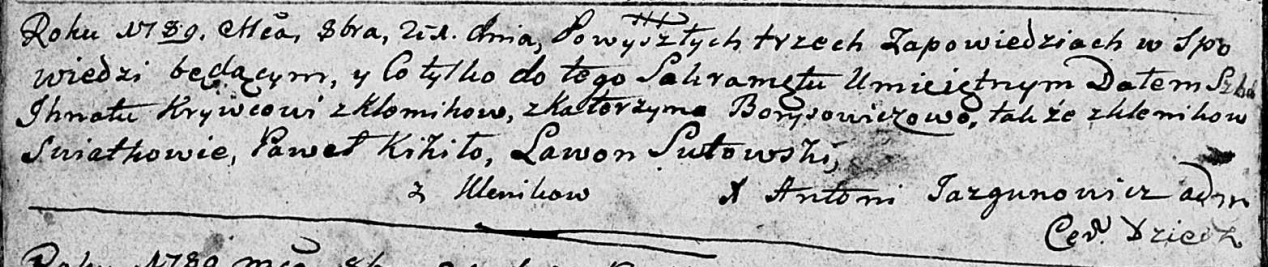 Roku 1789. Mca, 8bra, 21. dnia, Powyszłych trzech Zapowiedziach w Spo
wiedzi będącym, y Co tylko do tego Sakramętu Umieiętnym Dałem Szlub
Ihnatu Krywcowi z Klenikow, z Katerzyną Borysowiczowo, także z Klenikow
Swiatkowie, Paweł Kikiło, Lawon Sutowski,
z Klenikow X Antoni Jazgunowicz adm
Cer.
Roku 1789 mca 8b